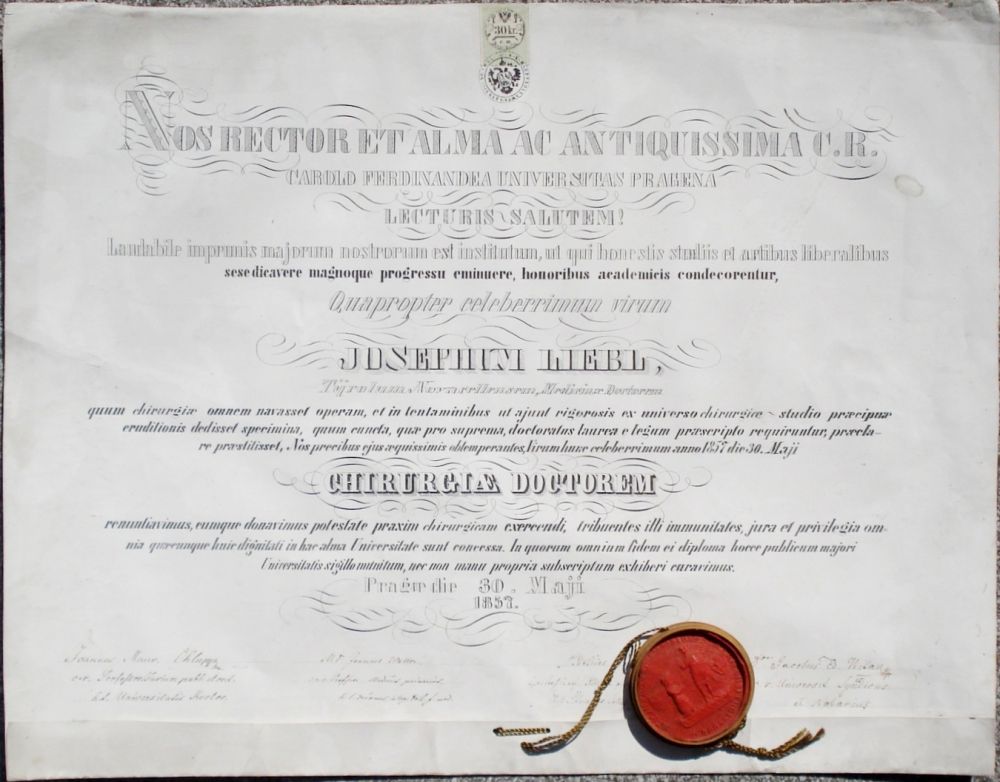 30 kr.
NOS RECTOR ET ALMA AC ANTIQUISSIMA C.R.
CAROLO FERDINANDEA UNIVERSITAS PRAGENA
LECTURIS SALUTEM!
Laudabile imprimis majorum nostrorum est institutum, ut qui honestis studiis et artibus liberalibus
sese dicavere magnoque progressu eminuere, honoribus academicis condecorentur,
Quapropter celeberrimum virum
JOSEPHUM LIEBL,
Tyrolum Novacellensem, Medicinæ Doctorem
quum chirurgiæ omnem navasset operam, et in tentaminibus ut ajunt rigorosis ex universo chirurgicæ studio præcipuæ
eruditionis dedisset specimina, quum cuncta, quæ pro suprema, doctoratus laurea e legum præscripto requiruntur, præcla-
re præstitisset, Nos precibus ejus æquissimis obtemperantes, Virum hunc celeberrimum anno 1857 die 30. Maji
CHIRURGIÆ DOCTOREM
renuntiavimus, eumque donavimus potestate praxim chirurgicam exercendi, tribuentes illi immunitates, jura et privilegia om-
nia quæcunque huic dignitati in hac alma Universitate sunt concessa. In quorum omnium fidem ei diploma hocce publicum majori
Universitatis sigillo munitum, nec non manu propria subscriptum exhiberi curavimus.
Pragæ die 30. Maji
1857.
Joannes
h.t. Universitatis Rector
Syndicus
et Notarius